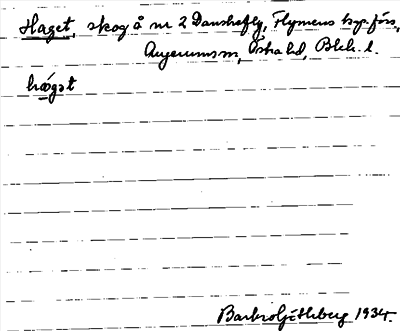 Haget, skog å nr 2 Danskafly, Flymens kap. förs.,
Augerums sn, Östra hd, Blek. l.
hǿgət
Barbro Götheberg 1934.